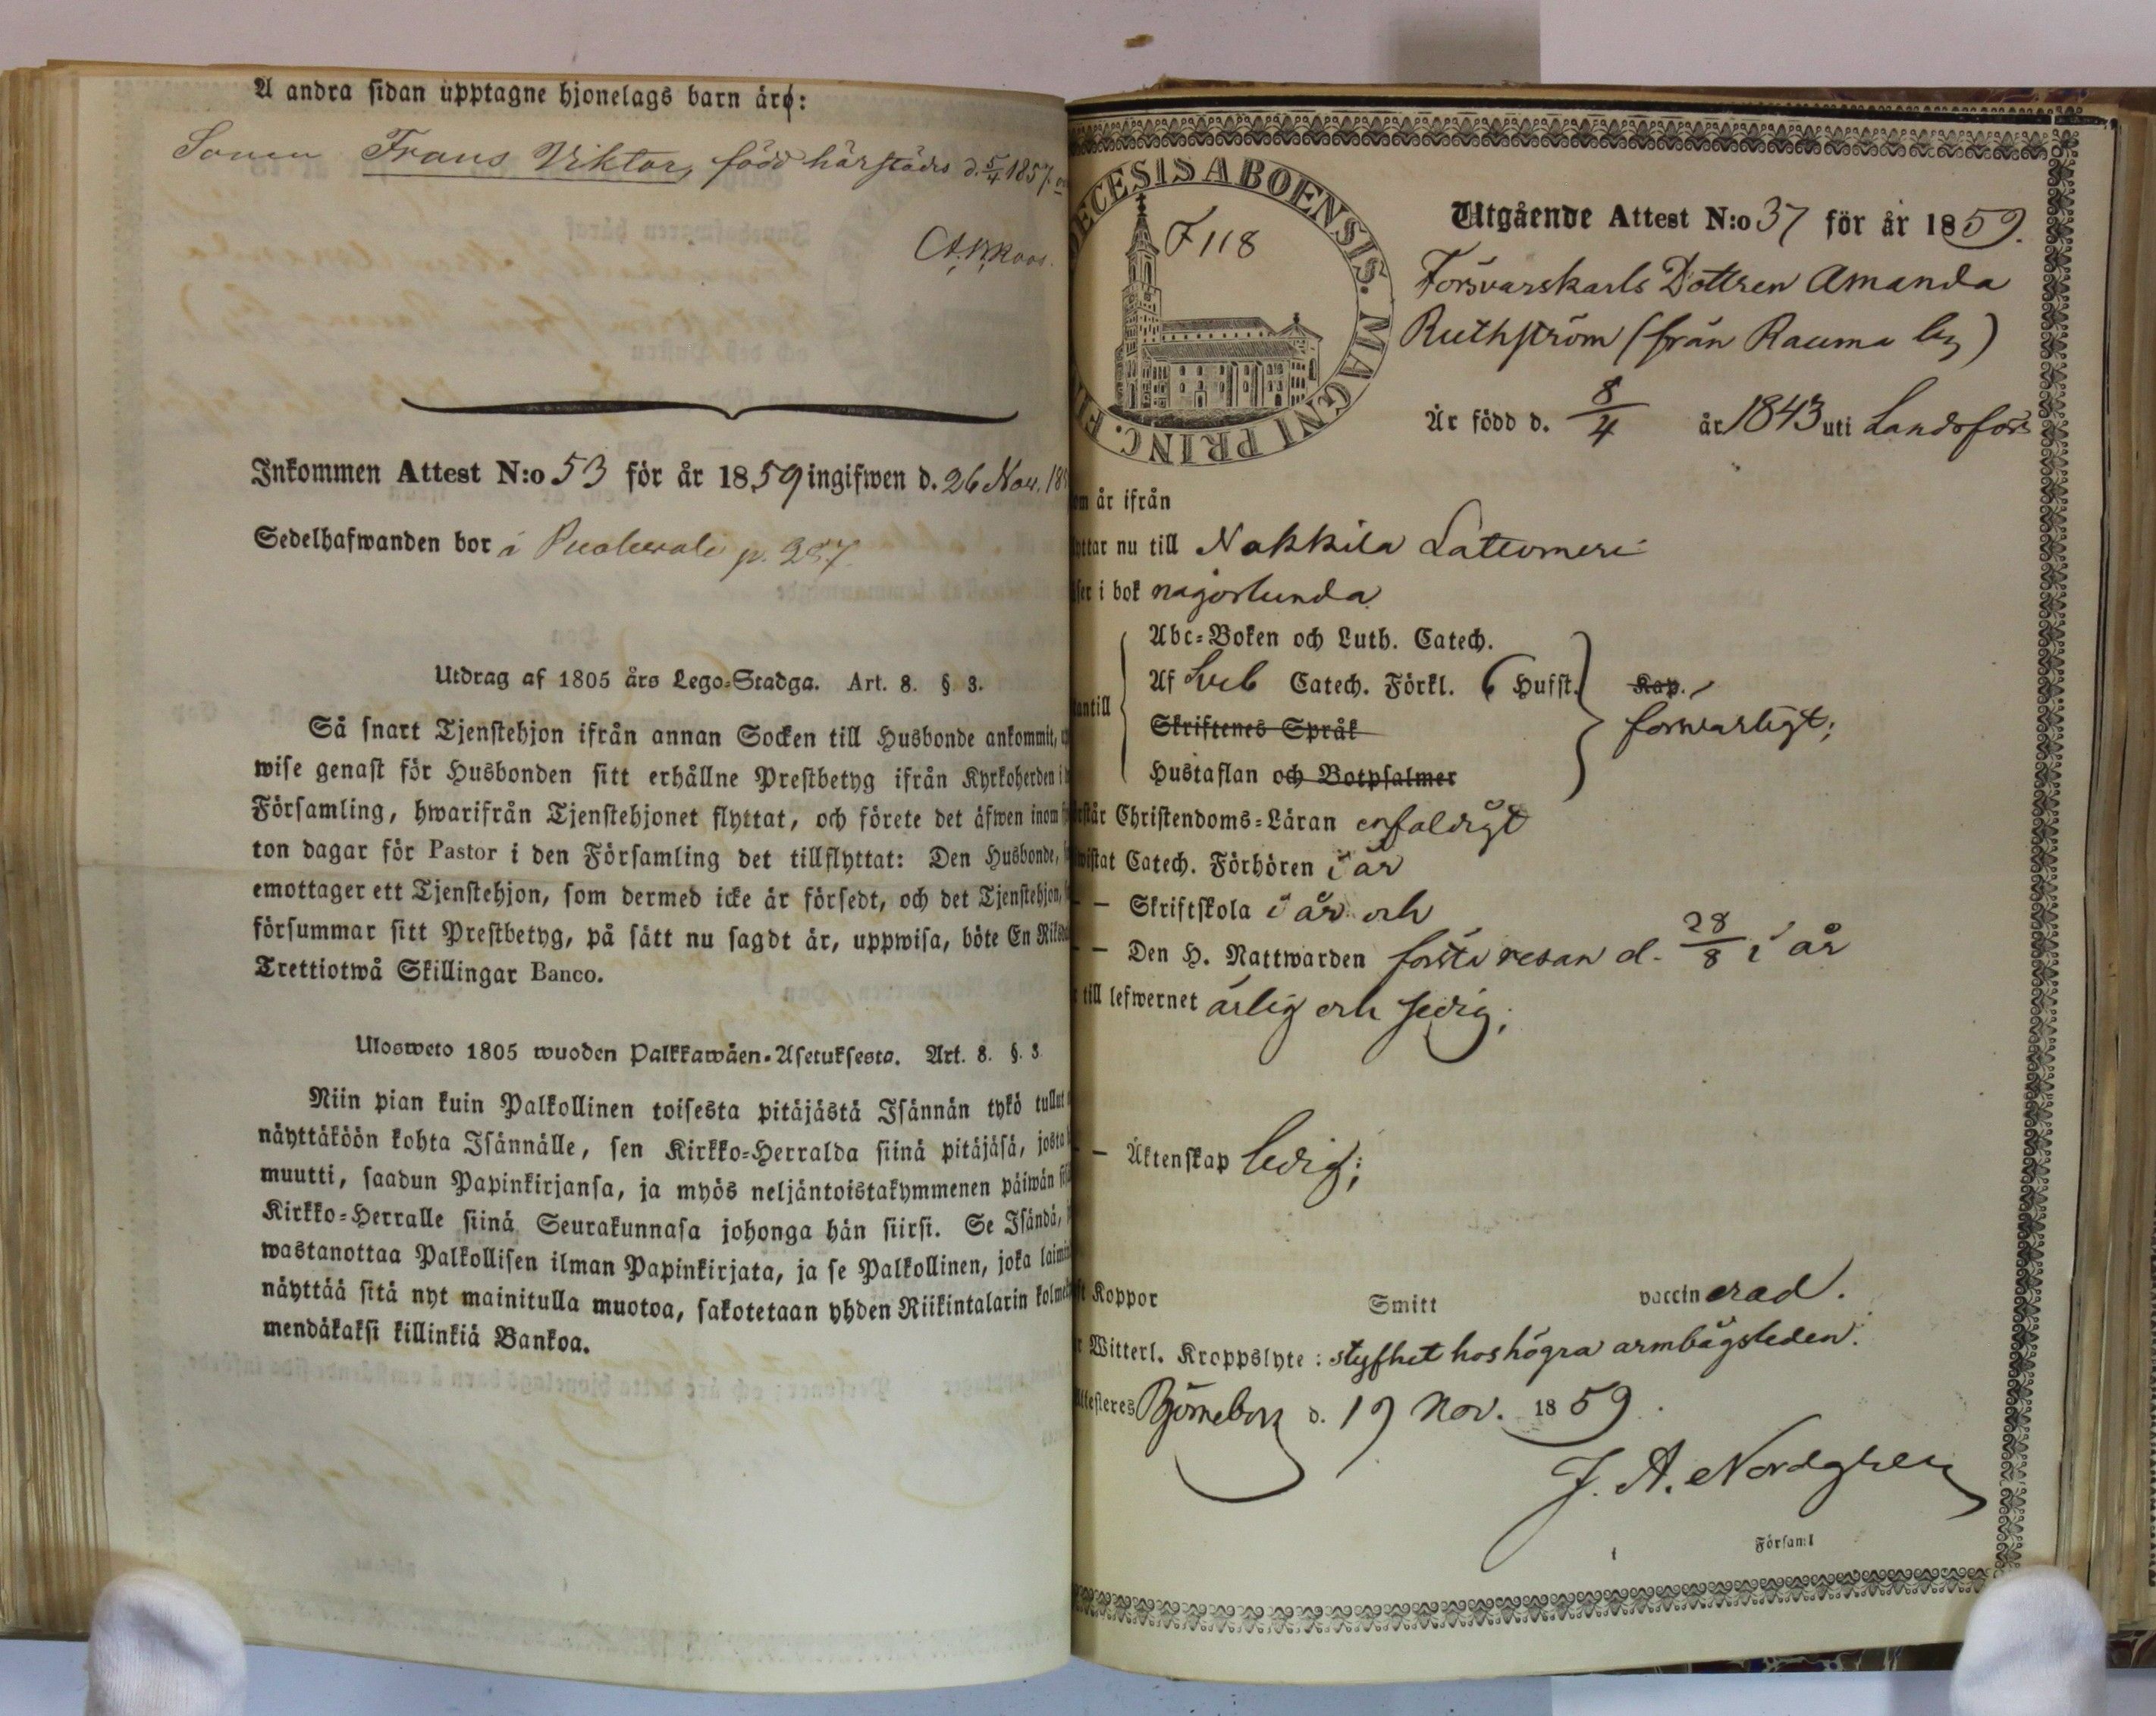 A andra sidan upptagne hjonelags barn äro:
Sonen Frans Viktor, född härstädes d. 5/4 1857.
Inkommen Attest N:o 53 för år 1859 ingifwen d. 26 Nov. 18
Sedelhafwanden bor å p. 287.
Utdrag af 1805 års Lego-Stadga. Art. 8. §. 3.
Så snart Tjenstehjon ifrån annan Socken till Husbonde ankommit,
wise genast för Husbonden sitt erhållne Prestbetyg ifrån Kyrkoherden i
Församling, hwarifrån Tjenstehjonet flyttat, och förete det äfwen inom
ton dagar för Pastor i den Församling det tillflyttat: Den Husbonde,
emottager ett Tjenstehjon, som dermed icke är försedt, och det Tjenstehjon,
försummar sitt Prestbetyg, på sätt nu sagdt är, uppwisa, böte En Riks
Trettiotwå Skillingar Banco.
Ulosweto 1805 wuoden Palkkawäen-Asetuksesta. Art. 8. §. 3
Niin pian kuin Palkollinen toisesta pitäjästä Isännän tykö tullut
näyttäköön kohta Isännälle, sen Kirkko-Herralda siinä pitäjäsä, josta
muutti, saadun Papinkirjansa, ja myös neljäntoistakymmenen päiwän
Kirkko-Herralle siinä Seurakunnasa johonga hän siirsi. Se Isändä,
wastanottaa Palkollisen ilman Papinkirjata, ja se Palkollinen, joka laimi
näyttää sitä nyt mainitulla muotoa, sakotetaan yhden Riikintalarin kolme
mendäkaksi killinkiä Bankoa.
ECESIS ABOENSIS. MAGNI PRINC. F
F 118
Utgående Attest N:o 37 för år 1859.
Försvarskarls Dottren Amanda
Ruthström (från Rauma by)
Är född d. 8/4 år 1843 uti Landsförs
om är ifrån
yttar nu till Nakkila Lattomeri
äser i bok någorlunda
Abc-Boken och Luth. Catech.
Af Sveb Catech. Förkl. 6 Hufst. Kap.
antill
Skriftenes Språk förswarligt;
Hustaflan och Botpsalmer
rstår Christendoms-Läran enfaldigt
wistat Catech. Förhören i år
— — Skriftskola i år och
— — Den H. Nattwarden första resan d. 28/8 i år
till lefwernet ärlig och sedig;
— — Äktenskap ledig;
ft Koppor Smitt vaccinerad.
r Witterl. Kroppslyte: styfhet hos högra armbågsleden.
Attesteres Björneborg d. 19 Nov. 1859.
J. A. Nordgren
Församl